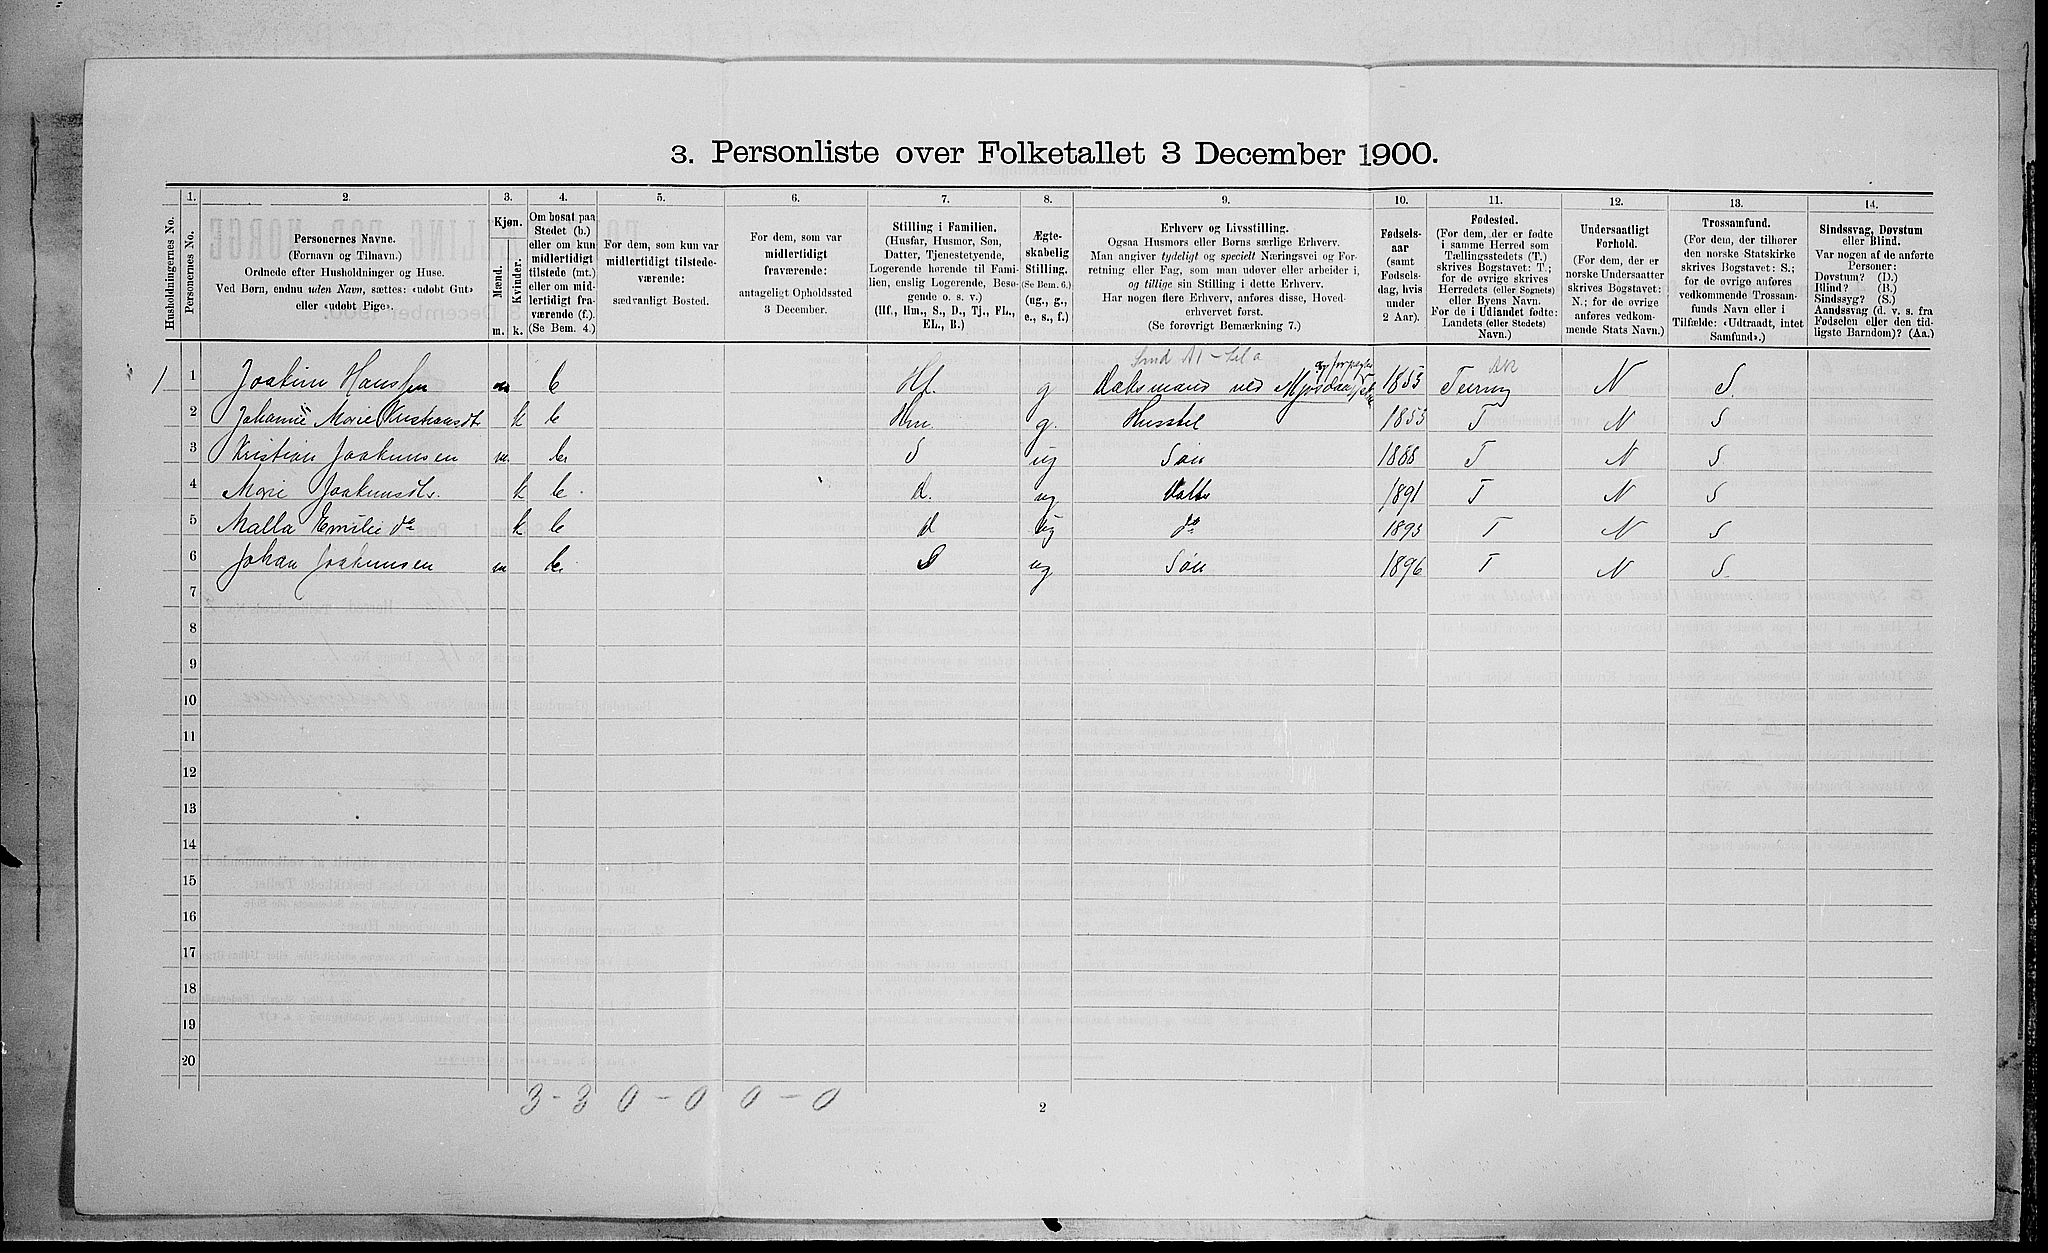 3. Personliste over Folketallet 3 December 1900.
1. 2. 3. 4. 5. 6. 7. 8. 9. 10. 11. 12. 13. 14.
Husholdningernes No.
Personernes No.
Personernes Navne.
(Fornavn og Tilnavn.)
Ordnede efter Husholdninger og Huse.
Ved Børn, endnu uden Navn, sættes: «udobt Gut»
eller «udobt Pige».
Kjøn.
Mænd.
Kvinder.
m. k.
Om bosat paa
Stedet (b.)
eller om kun
midlertidigt
tilstede (mt.)
eller om mid-
lertidigt fra-
værende (f.).
(Se Bem. 4.)
For dem, som kun var
midlertidigt tilstede-
værende:
sædvanligt Bosted.
For dem, som var
midlertidigt
fraværende:
antageligt Opholdssted
3 December.
Stilling i Familien.
(Husfar, Husmor, Søn,
Datter, Tjenestetyende,
Logerende hørende til Fami-
lien, enslig Logerende, Besø-
gende o. s. v.)
(Hf., Hm., S., D., Tj., FL.,
EL., B.)
Ægte-
skabelig
Stilling.
(Se Bem. 6.)
(ug., g.,
e., s., f.)
Erhverv og Livsstilling.
Ogsaa Husmors eller Børns særlige Erhverv.
Man angiver tydeligt og specielt Næringsvei og For-
retning eller Fag, som man udover eller arbeider i,
og tillige sin Stilling i dette Erhverv.
Har nogen flere Erhverv, anføres disse, Hoved-
erhvervet først.
(Se forøvrigt Bemærkning 7.)
Fødsels-
aar
(samt
Fødsels-
dag, hvis
under
2 Aar).
Fødested.
(For dem, der er fødte
i samme Herred som
Tællingsstedets (T.)
skrives Bogstavet: T.;
for de øvrige skrives
Herredets (eller Sognets)
eller Byens Navn.
For de i Udlandet fødte:
Landets (eller Stedets)
Navn.)
Undersaatligt
Forhold.
(For dem, der er
norske Undersaatter
skrives Bogstavet:
N.; for de øvrige
anføres vedkom-
mende Stats Navn.)
Trossamfund.
(For dem, der tilhører
den norske Statskirke
skrives Bogstavet: S.;
for de øvrige anføres
vedkommende Trossam-
funds Navn eller i
Tilfælde: «Udtraadt, intet
Samfund».)
Sindssvag, Døvstum
eller Blind.
Var nogen af de anførte
Personer:
Døvstum? (D.)
Blind? (B.)
Sindssyg? (S.)
Aandssvag (d. v. s. fra
Fødselen eller den tid-
ligste Barndom)? (Aa.)
1 1 Joakim Hanssen m b Hf. g ved 1853 N S.
2 Johanne Marie k b Hm. g. Husstel 1853 T N S
3 Kristian Joakimsen m b S ug Søn 1888 T N S.
4 Marie Joakimsdt. k b D. ug Datter 1891 T N S
5 Malla Emilie do k b d ug do 1893 T N S
6 Johan Joakimsen m b. S ug Søn 1896 T N S.
7
8
9
10
11
12
13
14
15
16
17
18
19
20
3 - 3 0 - 0 0 - 0
2